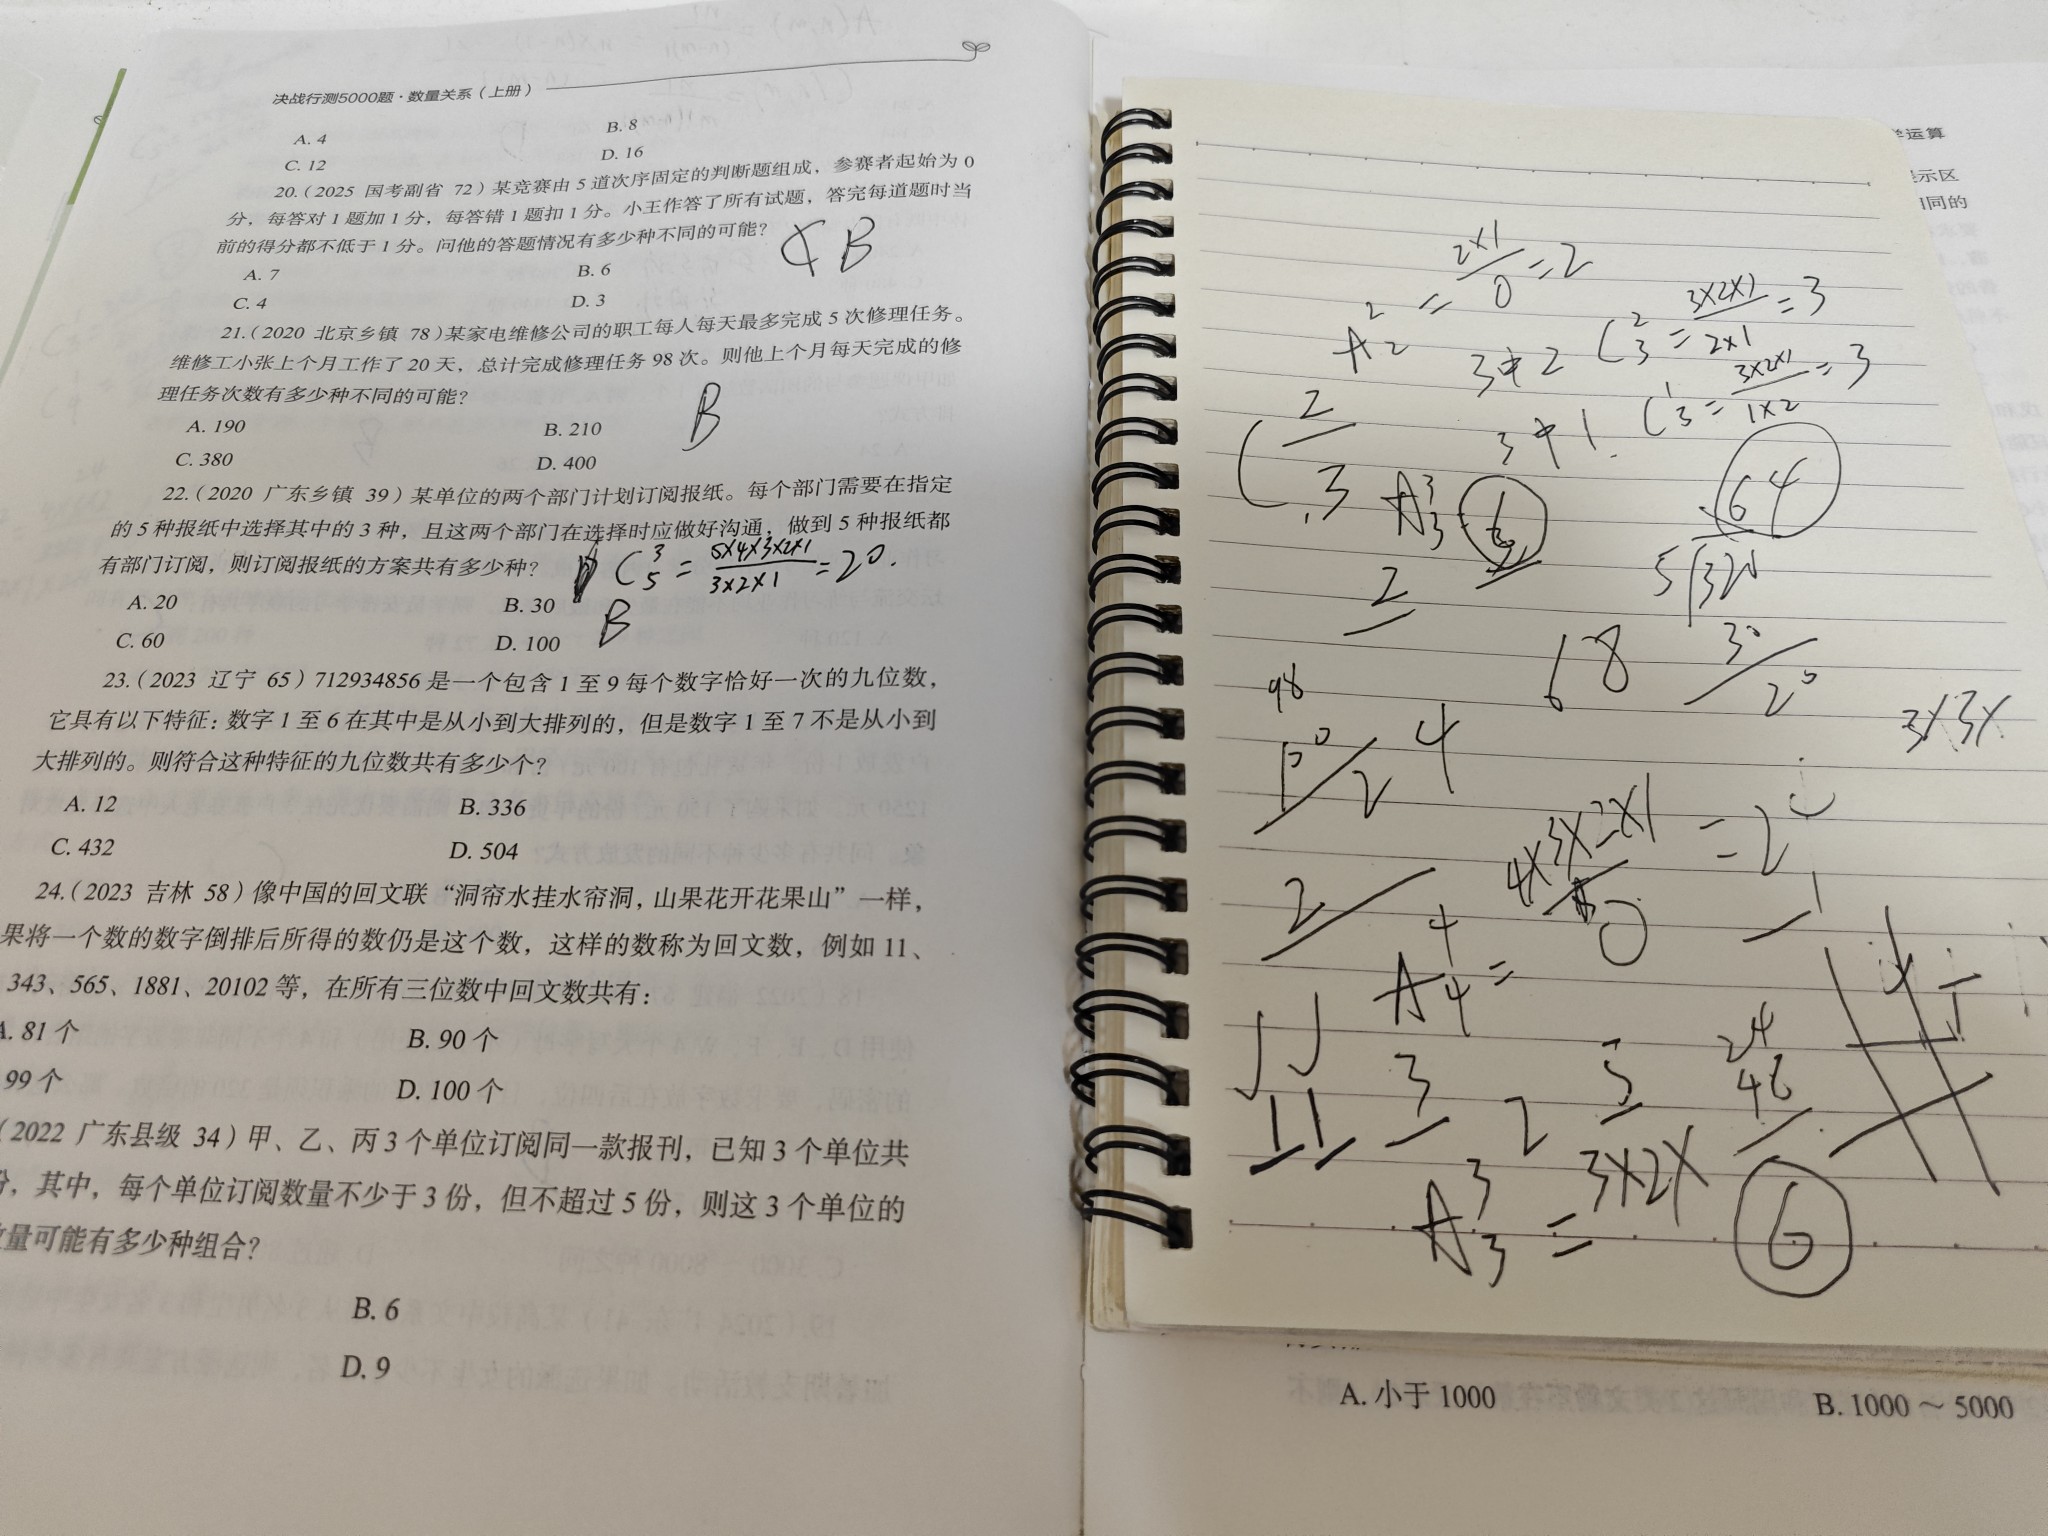 决战行测5000题·数量关系（上册）
A. 4
B. 8
C. 12
D. 16
20.（2025 国考副省 72）某竞赛由 5 道次序固定的判断题组成，参赛者起始为 0
分，每答对 1 题加 1 分，每答错 1 题扣 1 分。小王作答了所有试题，答完每道题时当
前的得分都不低于 1 分。问他的答题情况有多少种不同的可能？
B
A. 7
B. 6
C. 4
D. 3
21.（2020 北京乡镇 78）某家电维修公司的职工每人每天最多完成 5 次修理任务。
维修工小张上个月工作了 20 天，总计完成修理任务 98 次。则他上个月每天完成的修
理任务次数有多少种不同的可能？
B
A. 190
B. 210
C. 380
D. 400
22.（2020 广东乡镇 39）某单位的两个部门计划订阅报纸。每个部门需要在指定
的 5 种报纸中选择其中的 3 种，且这两个部门在选择时应做好沟通，做到 5 种报纸都
有部门订阅，则订阅报纸的方案共有多少种？
C 3 5 = 5×4×3×2×1 / 3×2×1 = 20.
A. 20
B. 30
B
C. 60
D. 100
23.（2023 辽宁 65）712934856 是一个包含 1 至 9 每个数字恰好一次的九位数，
它具有以下特征：数字 1 至 6 在其中是从小到大排列的，但是数字 1 至 7 不是从小到
大排列的。则符合这种特征的九位数共有多少个？
A. 12
B. 336
C. 432
D. 504
24.（2023 吉林 58）像中国的回文联“洞帘水挂水帘洞，山果花开花果山”一样，
果将一个数的数字倒排后所得的数仍是这个数，这样的数称为回文数，例如 11、
343、565、1881、20102 等，在所有三位数中回文数共有：
A. 81 个
B. 90 个
99 个
D. 100 个
（2022 广东县级 34）甲、乙、丙 3 个单位订阅同一款报刊，已知 3 个单位共
份，其中，每个单位订阅数量不少于 3 份，但不超过 5 份，则这 3 个单位的
量可能有多少种组合？
B. 6
D. 9
学运算
示区
同的
A 2 2 = 2×1 / 0 = 2
C 2 3 = 3×2×1 / 2×1 = 3
C 1 3 = 3×2×1 / 1×2 = 3
C 2 3
A 3 3
64
5 320
2
68
30
20
3×3×
98
100
2
4
4×3×2×1 / 0 = 2
2
A 4 4 =
11
3
2
5
24
A 3 3 = 3×2×
6
A. 小于 1000
B. 1000 ～ 5000